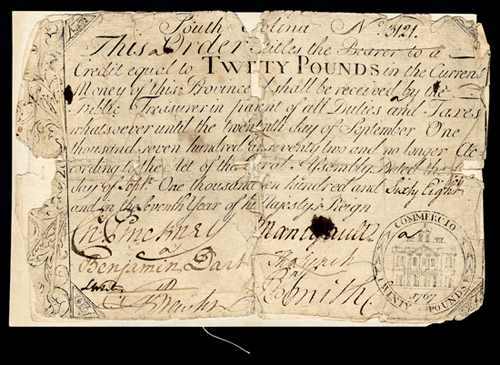 South olina No. 3121.
This Order titles the Bearer to a
Credit equal to TWETY POUNDS in the Curren
Money of this Province shall be received by the
Public Treasurer in pament of all Duties and Taxes
whatsoever until the twentieth day of September One
thousand seven hundred an seventy two and no longer Ac
cording to the Act of the ral Assembly Dated the
day of Sept. One thousand en hundred and Sixty Eight
and in the Seventh Year of his Majestys Reign
Chs. Pinckney
Benjamin Dart
Ths. Lynch
B. Smith
COMMERCIO
1767
TWENTY POUNDS